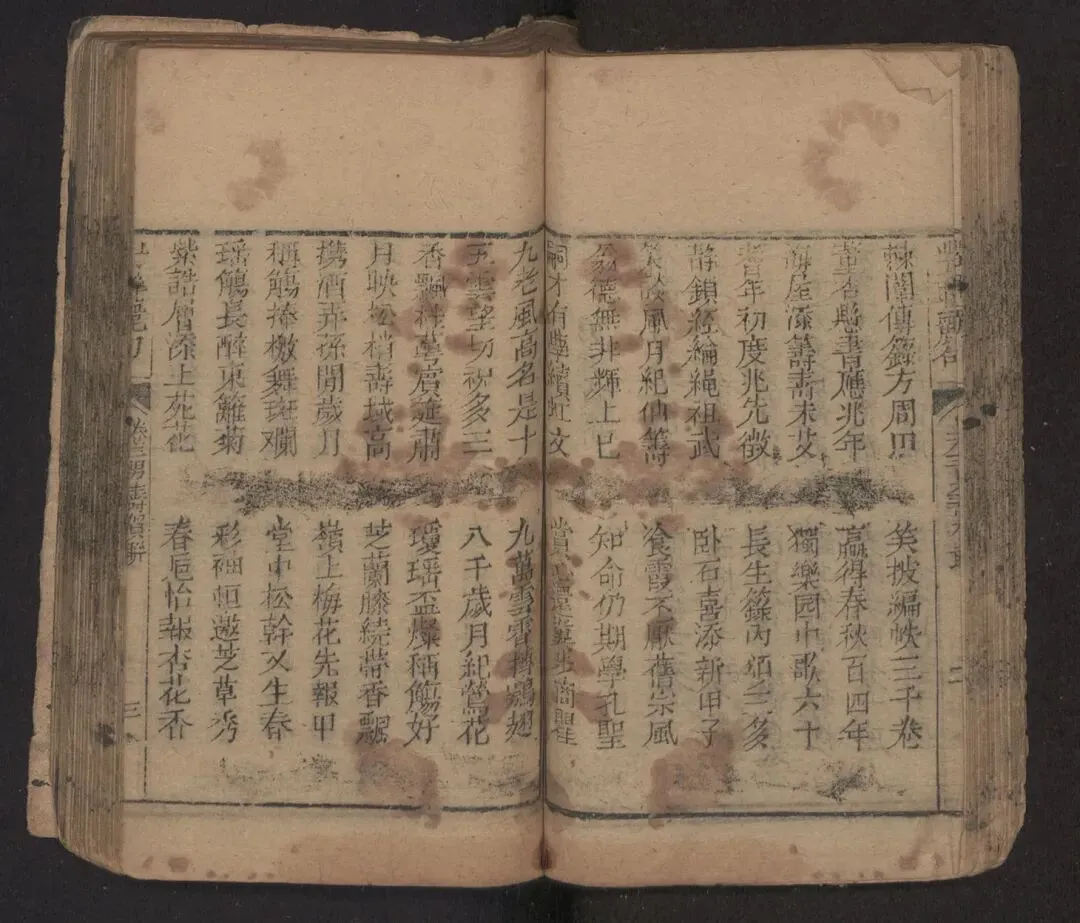 傳錄方周甲 笑披編帙三千卷
杏 書應兆年 贏得春秋百四年
海屋添籌壽未艾 獨樂园中歌六十
年初度兆先徵 長生籙內頌三多
靜鎖經綸繩祖武 卧石喜添新甲子
笑談風月紀仙籌 飡霞不厭舊宗風
德無非輝上巳 知命仍期學孔聖
嗣才有學
九老風高名是十 九萬雲霄摶鷃翅
五雲望切祝多三 八千歲月紀鶯花
香飄桂萼賡筵肅 瓊瑶盃燦稱觴好
月映松梢壽域高 芝蘭膝繞帶香飄
携酒弄孫閒歲月 嶺上梅花先報甲
稱觴捧檄舞斑斕 堂中松幹又生春
瑶觴長醉東籬菊 彩袖恒邀芝草秀
紫誥層添上苑花 春巵怡報杏花香
卷三男壽賀聯 三